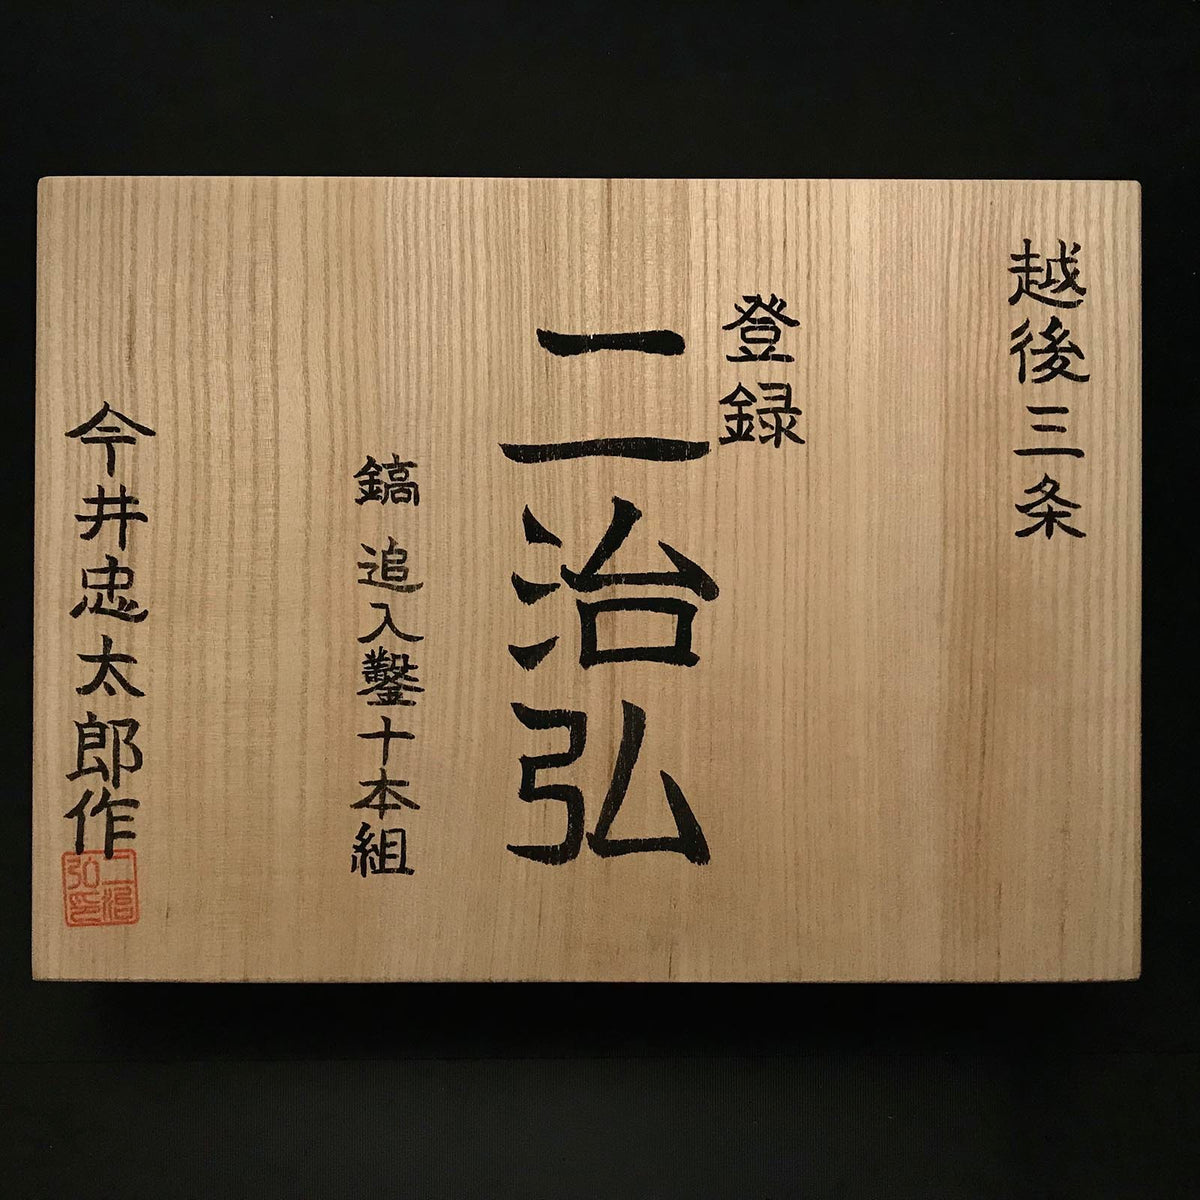 越後三条
登録
二治弘
鎬 追入鑿十本組
今井忠太郎作
二治弘印